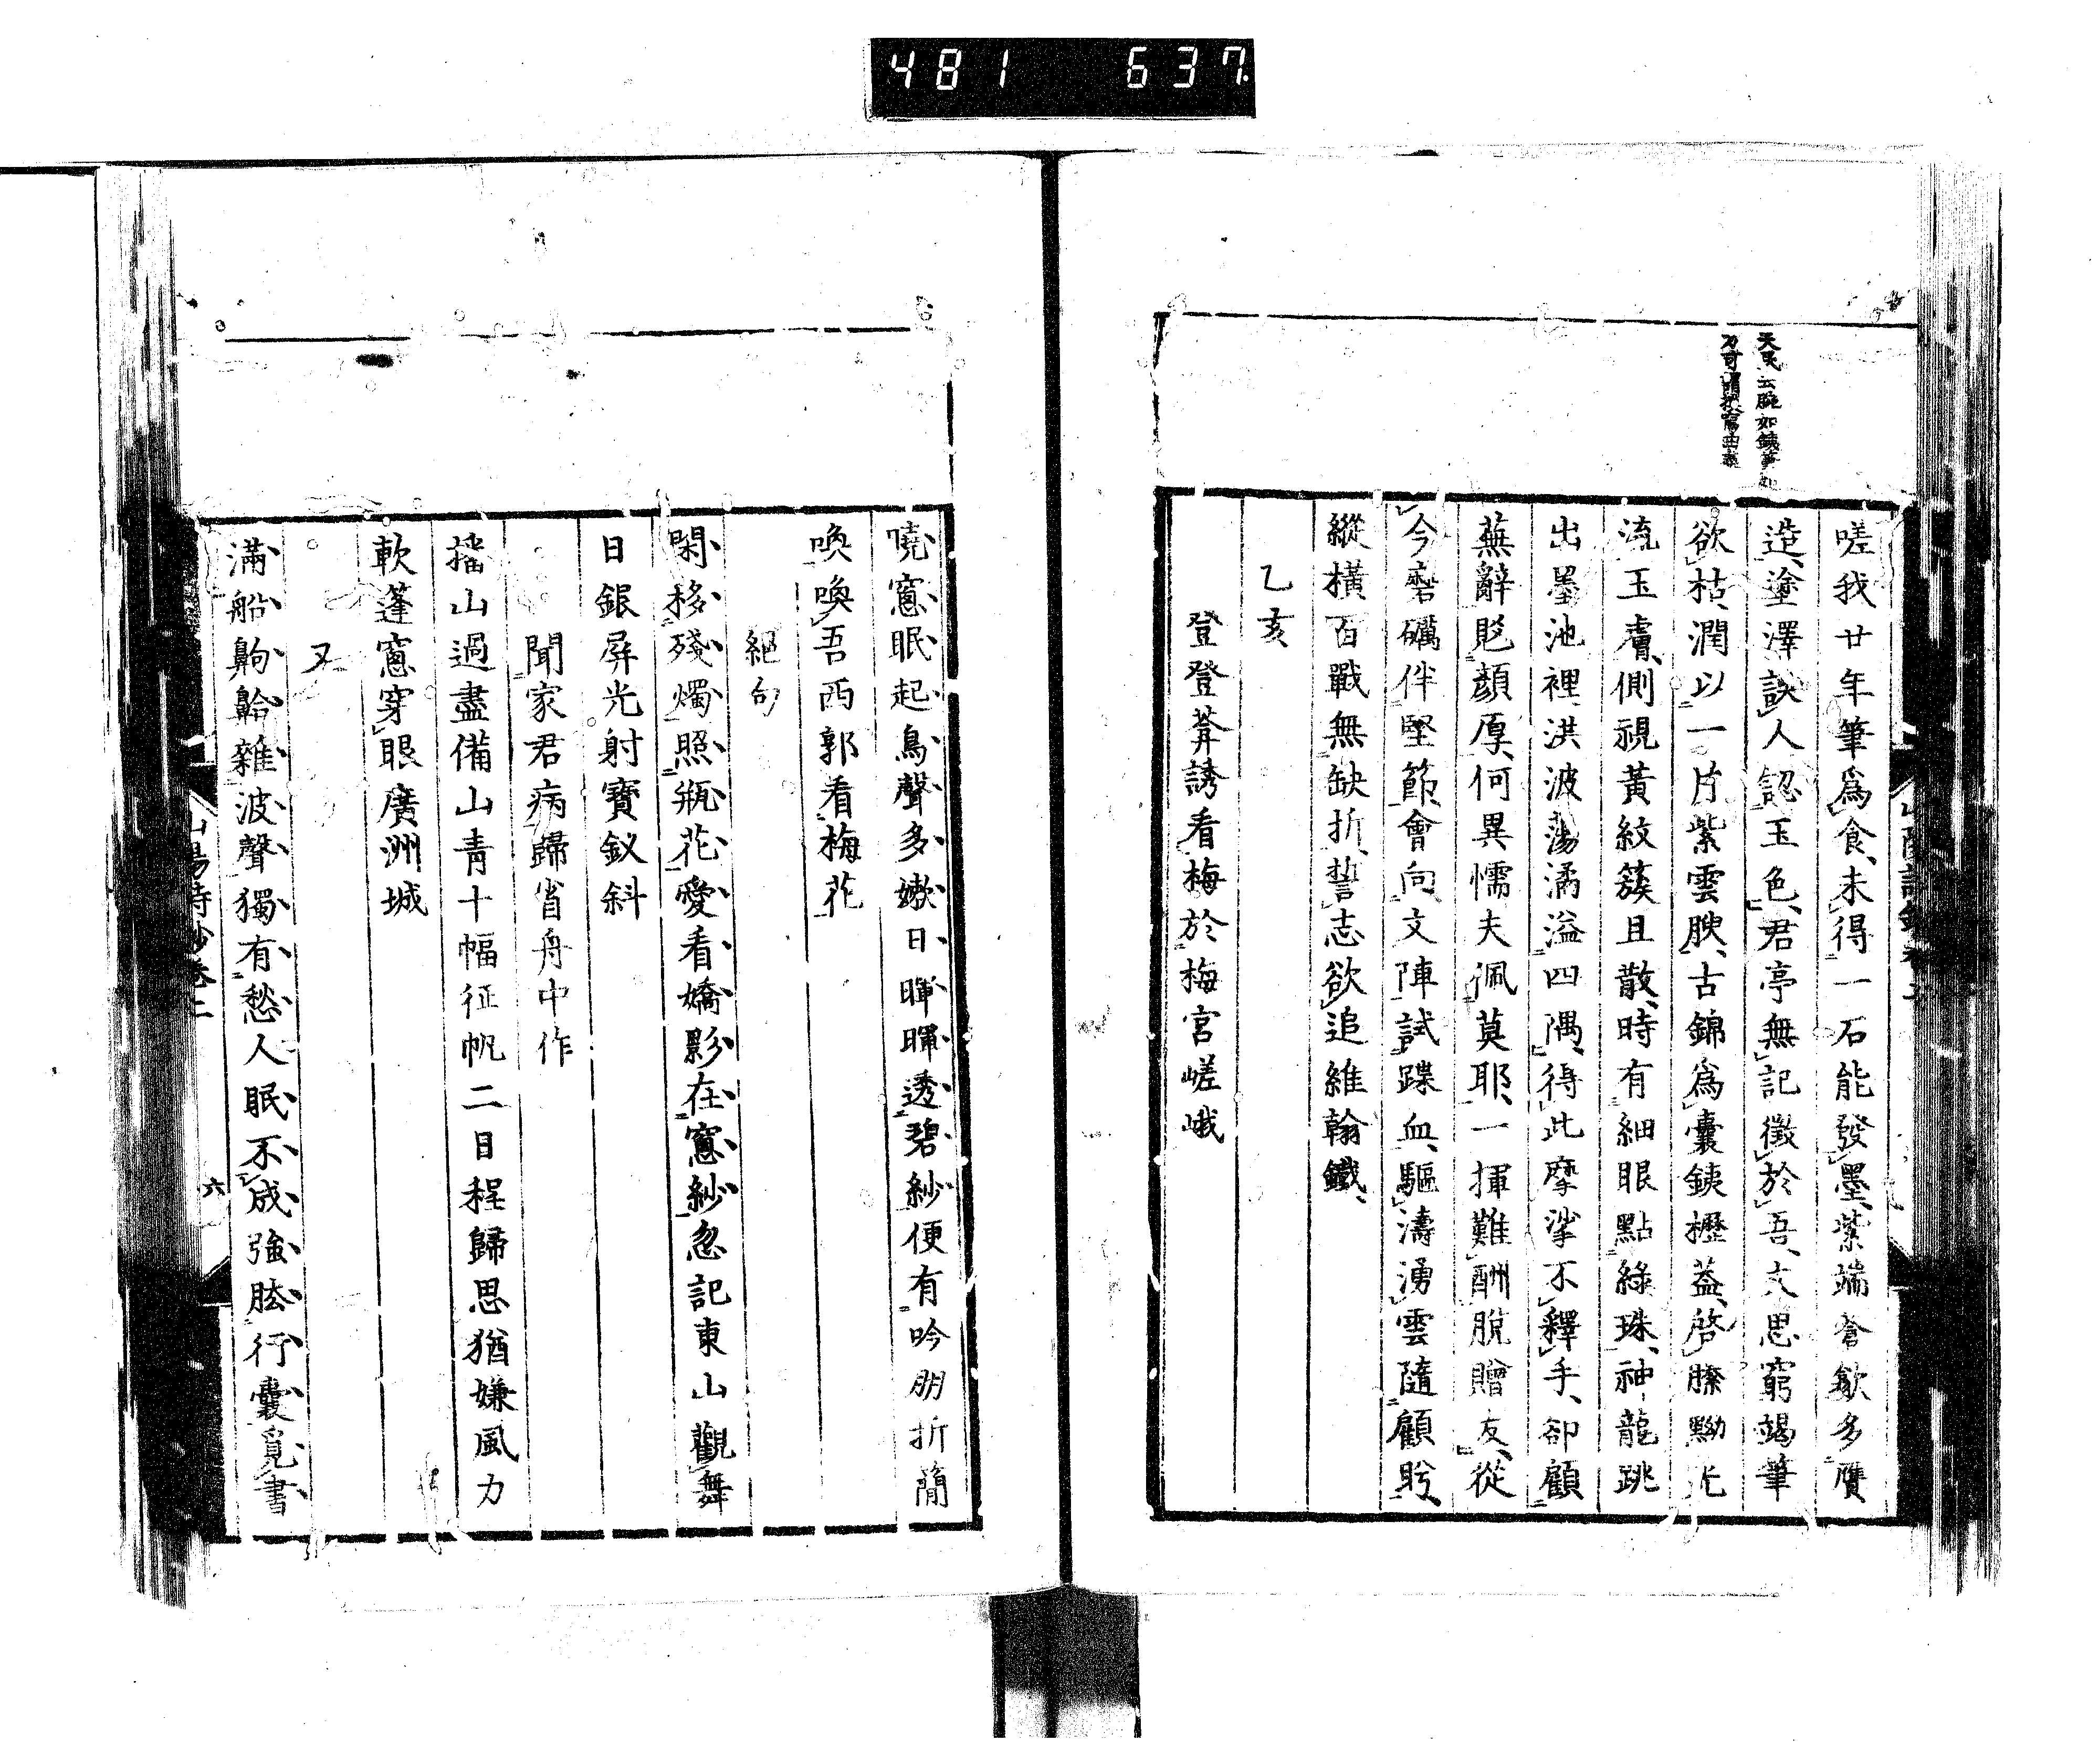 481 637.
天民云腕如鐵筆如
刀可謂
嗟我廿年筆爲食未得一石能發墨紫端蒼歙多贋
造塗澤誤人認玉色君亭無記徵於吾文思窮竭筆
欲枯潤以一片紫雲腴古錦爲囊鐵櫪蓋啓縢黝光
流玉膚側視黃紋簇且散時有細眼點綠珠神龍跳
出墨池裡洪波蕩潏溢四隅得此摩挲不釋手卻顧
蕪辭貶顏厚何異懦夫佩莫耶一揮難酬脫贈友從
今磨礪伴堅節會向文陣試蹀血驅濤湧雲隨顧眄
縱橫百戰無缺折誓志欲追維翰鐵
乙亥
登登菴誘看梅於梅宮嵯峨
曉窻眠起鳥聲多嫩日暉暉透碧紗便有吟朋折簡
喚喚吾西郭看梅花
絕句
閑移殘燭照瓶花愛看嬌影在窻紗忽記東山觀舞
日銀屏光射寶釵斜
聞家君病歸省舟中作
播山過盡備山青十幅征帆二日程歸思猶嫌風力
軟蓬窻穿眼廣洲城
又
滿船齁齡雜波聲獨有愁人眠不成強胠行囊覓書
山陽詩鈔卷二
六